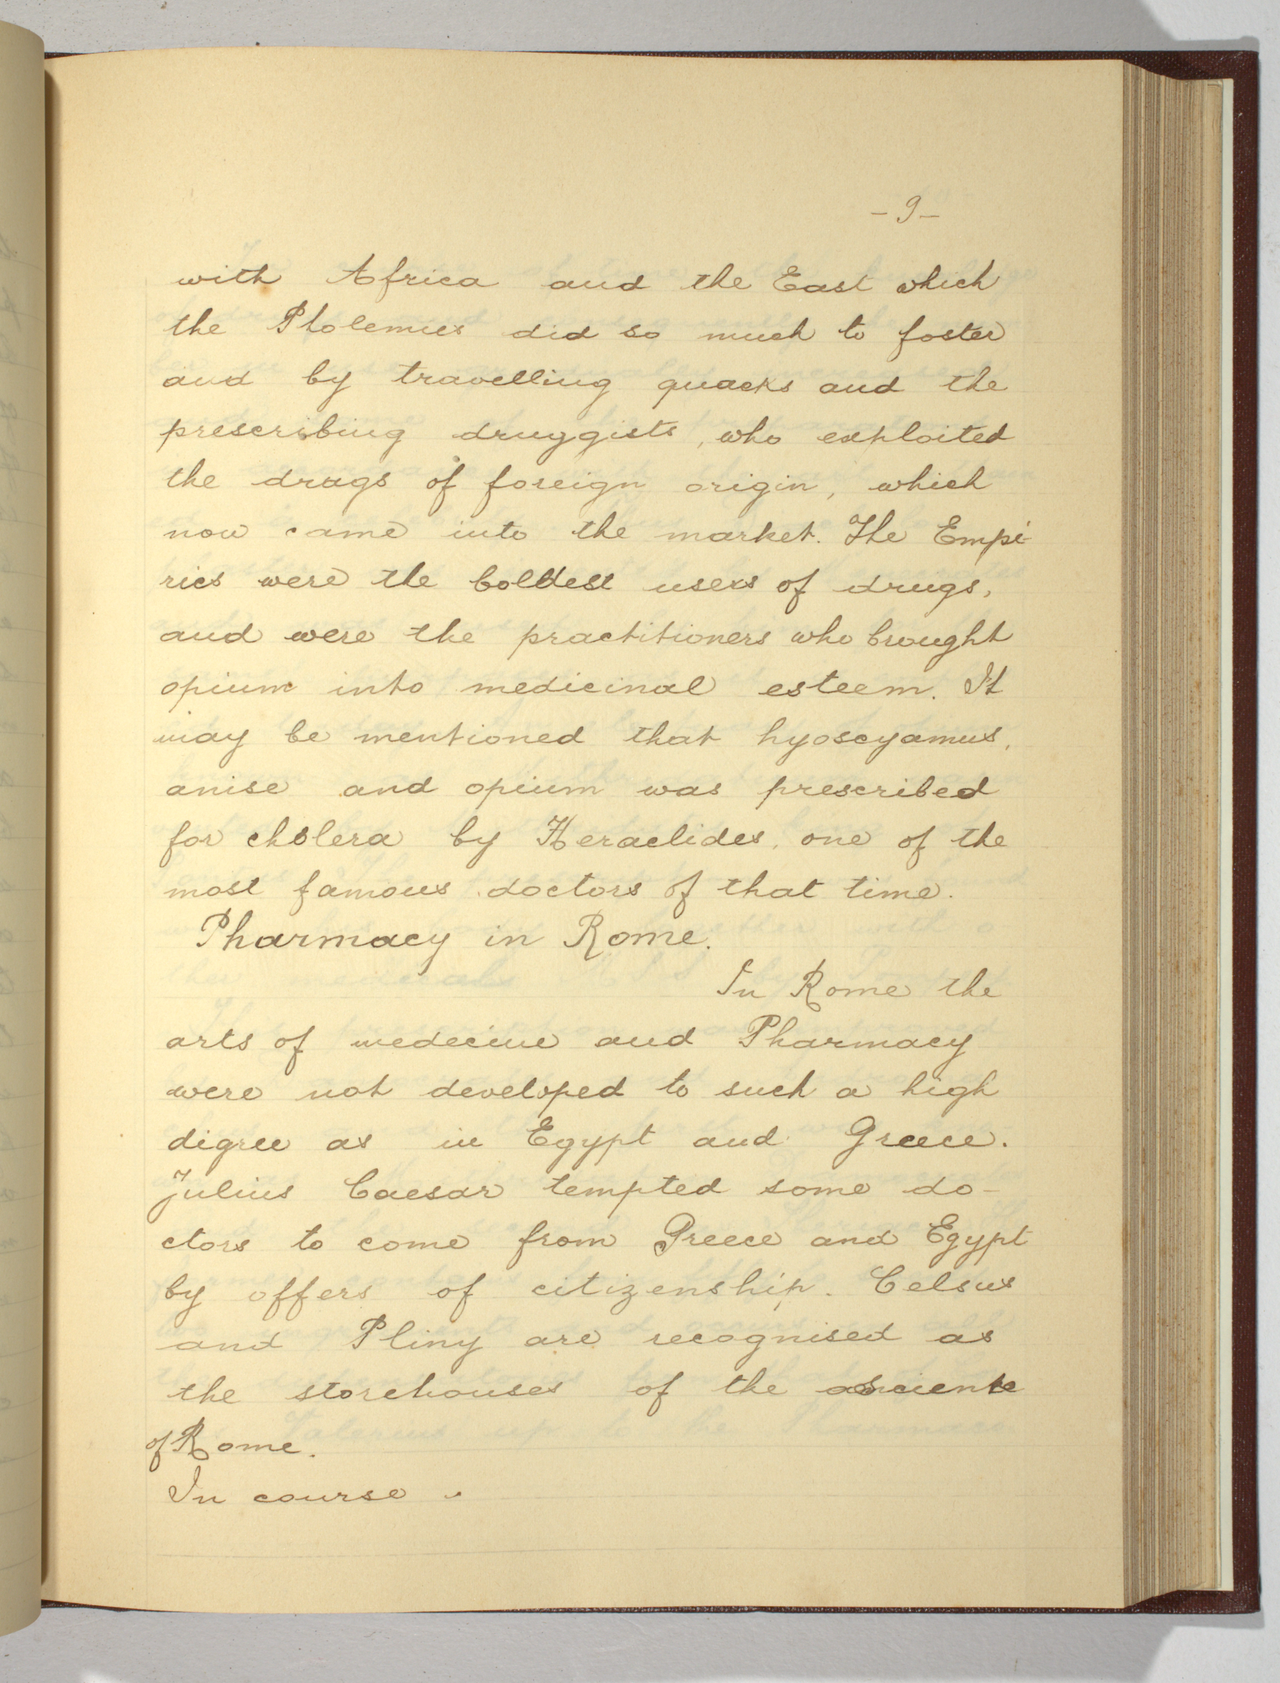 -9-
with Africa and the East which
the Ptolemies did so much to foster
and by travelling quacks and the
prescribing druggists, who exploited
the drugs of foreign origin, which
now came into the market. The Empi-
rics were the boldest users of drugs,
and were the practitioners who brought
opium into medicinal esteem. It
may be mentioned that hyoscyamus,
anise and opium was prescribed
for cholera by Heraclides, one of the
most famous doctors of that time.
Pharmacy in Rome.
In Rome the
arts of medecine and Pharmacy
were not developed to such a high
digree as in Egypt and Greece.
Julius Caesar tempted some do-
ctors to come from Greece and Egypt
by offers of citizenship. Celsus
and Pliny are recognised as
the storehouses of the
of Rome.
In course